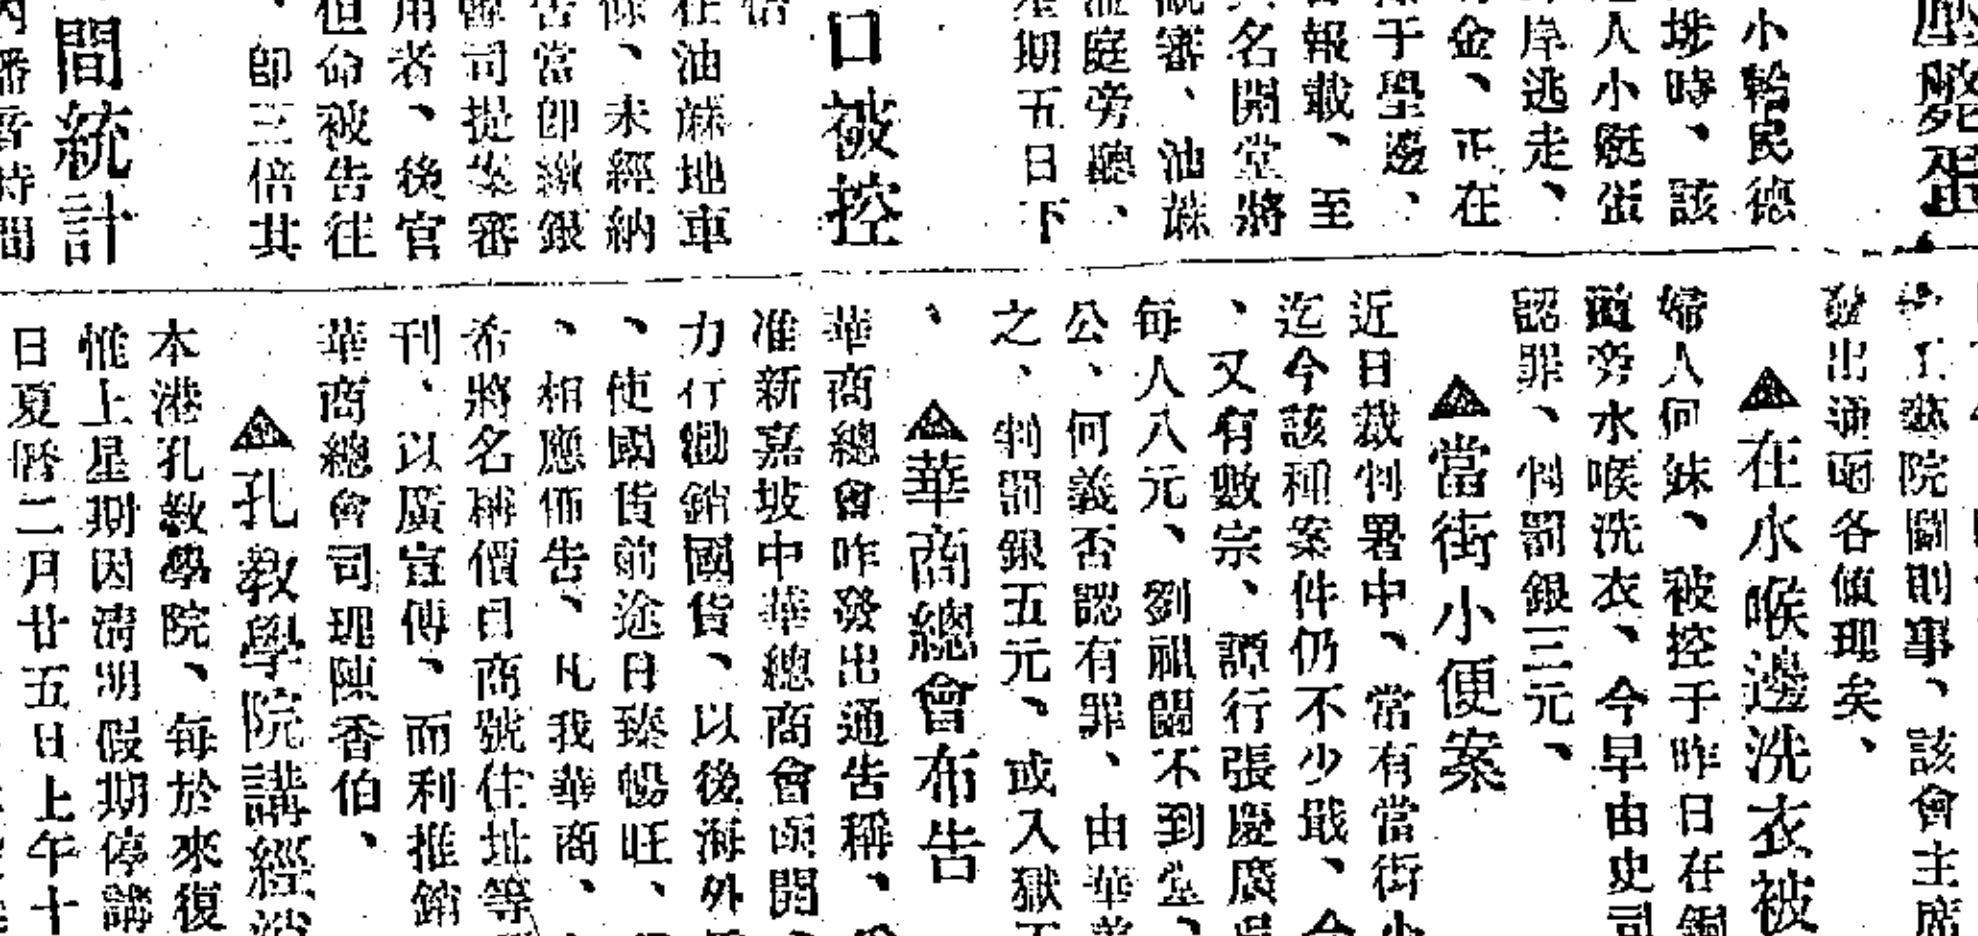 小輪民德
埗時、該
人小艇蛋
岸逃走、
金、正在
于壆邊、
報載、至
名開堂將
審、油蔴
庭旁聽、
期五日下
口被控
在油蔴地車
、未經納
當即繳銀
司提案審
用者、後官
但命被告往
、即三倍其
間統計
時間
工藝院開則事、該會主席
發出通函各值理矣、
▲在水喉邊洗衣被
婦人何妹、被控于昨日在銅
道旁水喉洗衣、今早由史司
認罪、判罰銀三元、
▲當街小便案
近日裁判署中、當有當街小
迄今該種案件仍不少戢、今
、又有數宗、譚行張慶廣吳
每人八元、劉祖關不到堂、
公、何義否認有罪、由華差
之、判罰銀五元、或入獄五
、
▲華商總會布告
華商總會昨發出通告稱、
准新嘉坡中華總商會函開
力行勸銷國貨、以後海外
、使國貨前途日臻暢旺、
、相應佈告、凡我華商、
希將名稱價目商號住址等
刊、以廣宣傳、而利推銷
華商總會司理陳香伯、
▲孔教學院講經
本港孔教學院、每於來復
惟上星期因清明假期停講
日夏曆二月廿五日上午十